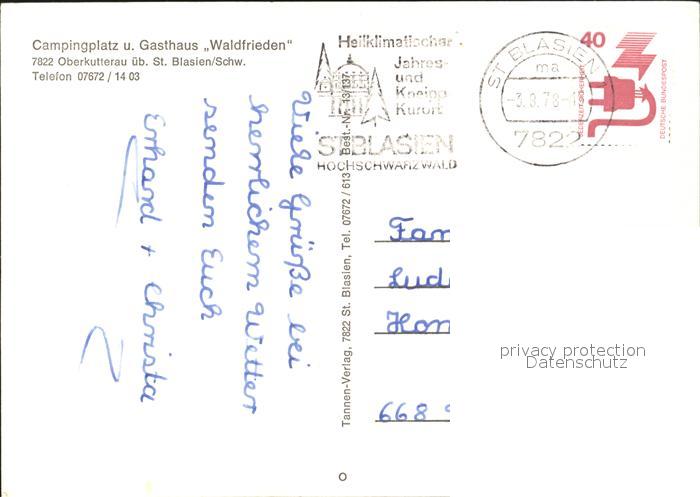 Campingplatz u. Gasthaus „Waldfrieden"
7822 Oberkutterau üb. St. Blasien/Schw.
Telefon 07672 / 14 03
Viele Grüße bei
herrlichem Wetter
senden Euch
Erhard + Christa
Tannen-Verlag, 7822 St. Blasien, Tel. 07672 / 613 Best.-Nr. 13/137
Heilklimatischer
Jahres-
und
Kneipp
Kurort
ST. BLASIEN
HOCHSCHWARZWALD
ST. BLASIEN
ma
-3.3.78-1
7822
40
JEDERZEIT SICHERHEIT
DEUTSCHE BUNDESPOST
Fam
Lud
Hom
668
privacy protection
Datenschutz